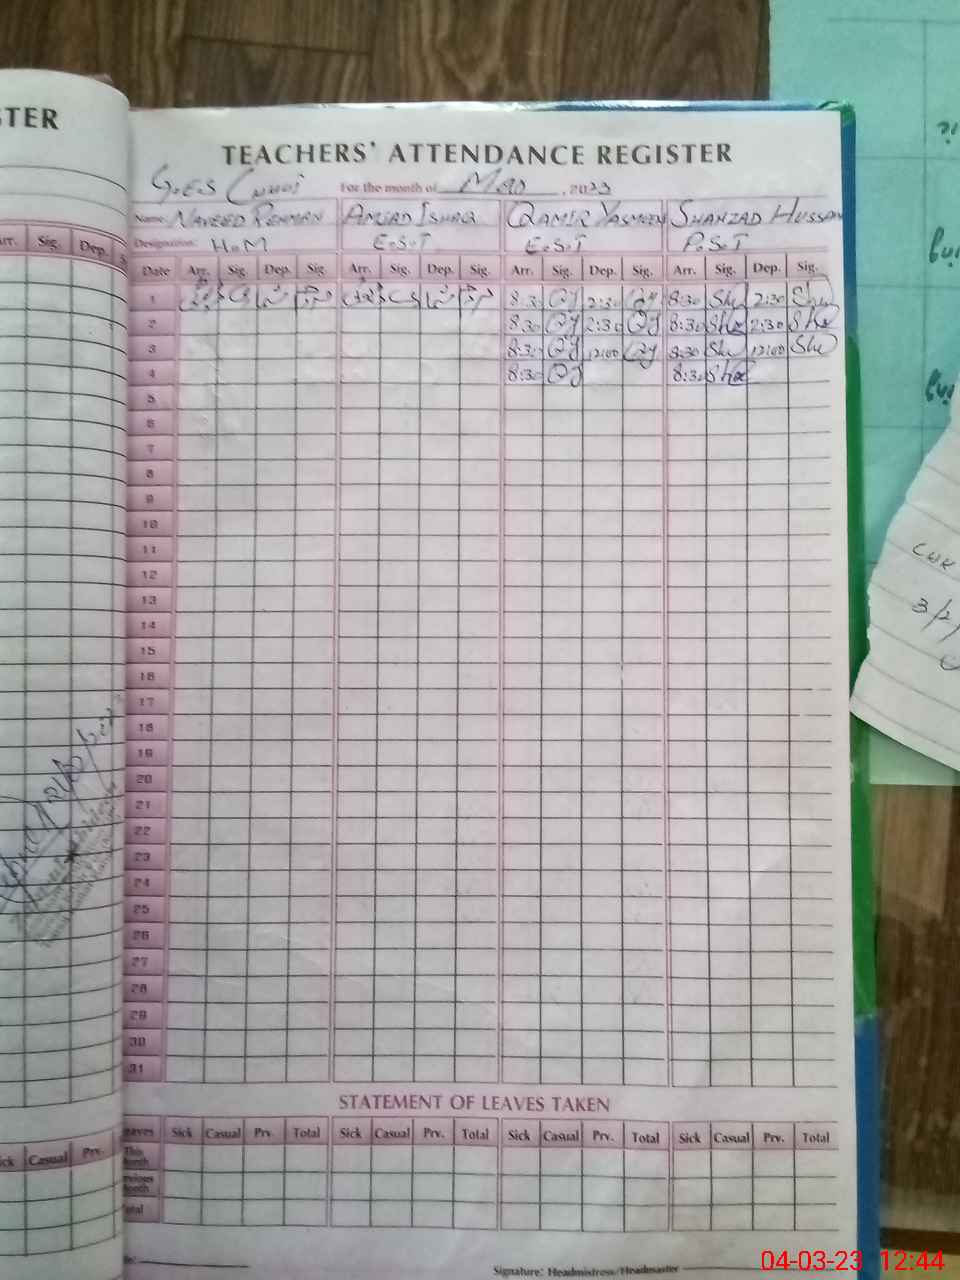 STER
TEACHERS' ATTENDANCE REGISTER
G.E.S For the month of Mar, 2023
Name: NAVEED REHMAN AMJAD ISHAQ QAMER YASMEEN SHAHZAD HUSSAN
Designation: H.M E.S.T E.S.T P.S.T
Arr. Sig. Dep. S
Date Arr. Sig. Dep. Sig. Arr. Sig. Dep. Sig. Arr. Sig. Dep. Sig. Arr. Sig. Dep. Sig.
1 8:30 QY 2:30 QY 8:30 2:30
2 8:30 QY 2:30 QY 8:30 2:30
3 8:30 QY 12:00 QY 8:30 12:00
4 8:30 QY 8:30
5
6
7
8
9
10
11
12
13
14
15
16
17
18
19
20
21
22
23
24
25
26
27
28
29
30
31
STATEMENT OF LEAVES TAKEN
Leaves Sick Casual Prv. Total Sick Casual Prv. Total Sick Casual Prv. Total Sick Casual Prv. Total
Sick Casual Prv.
This Month
Previous Month
Total
Signature: Headmistress/Headmaster
04-03-23 12:44